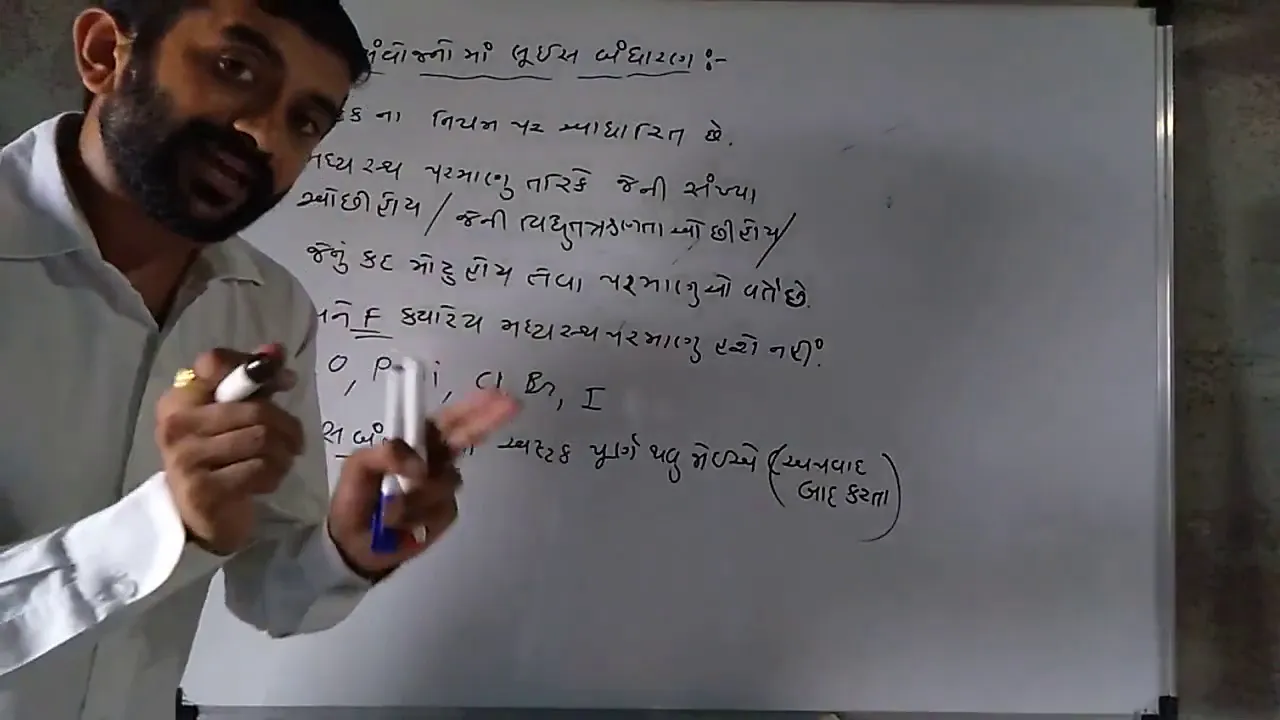 સંયોજનોમાં લૂઈસ બંધારણ :-
ના નિયમ પર આધારિત છે.
મધ્યસ્થ પરમાણુ તરિકે જેની સંખ્યા
ઓછી હોય / જેની વિદ્યુતઋણતા ઓછી હોય /
જેનું કદ મોટુ હોય તેવા પરમાણુઓ વર્તે છે.
અને F ક્યારેય મધ્યસ્થ પરમાણુ હશે નહીં.
O, P, i, Cl Br, I
અષ્ટક પૂર્ણ થવુ જોઇએ (અપવાદ
બાદ કરતા)